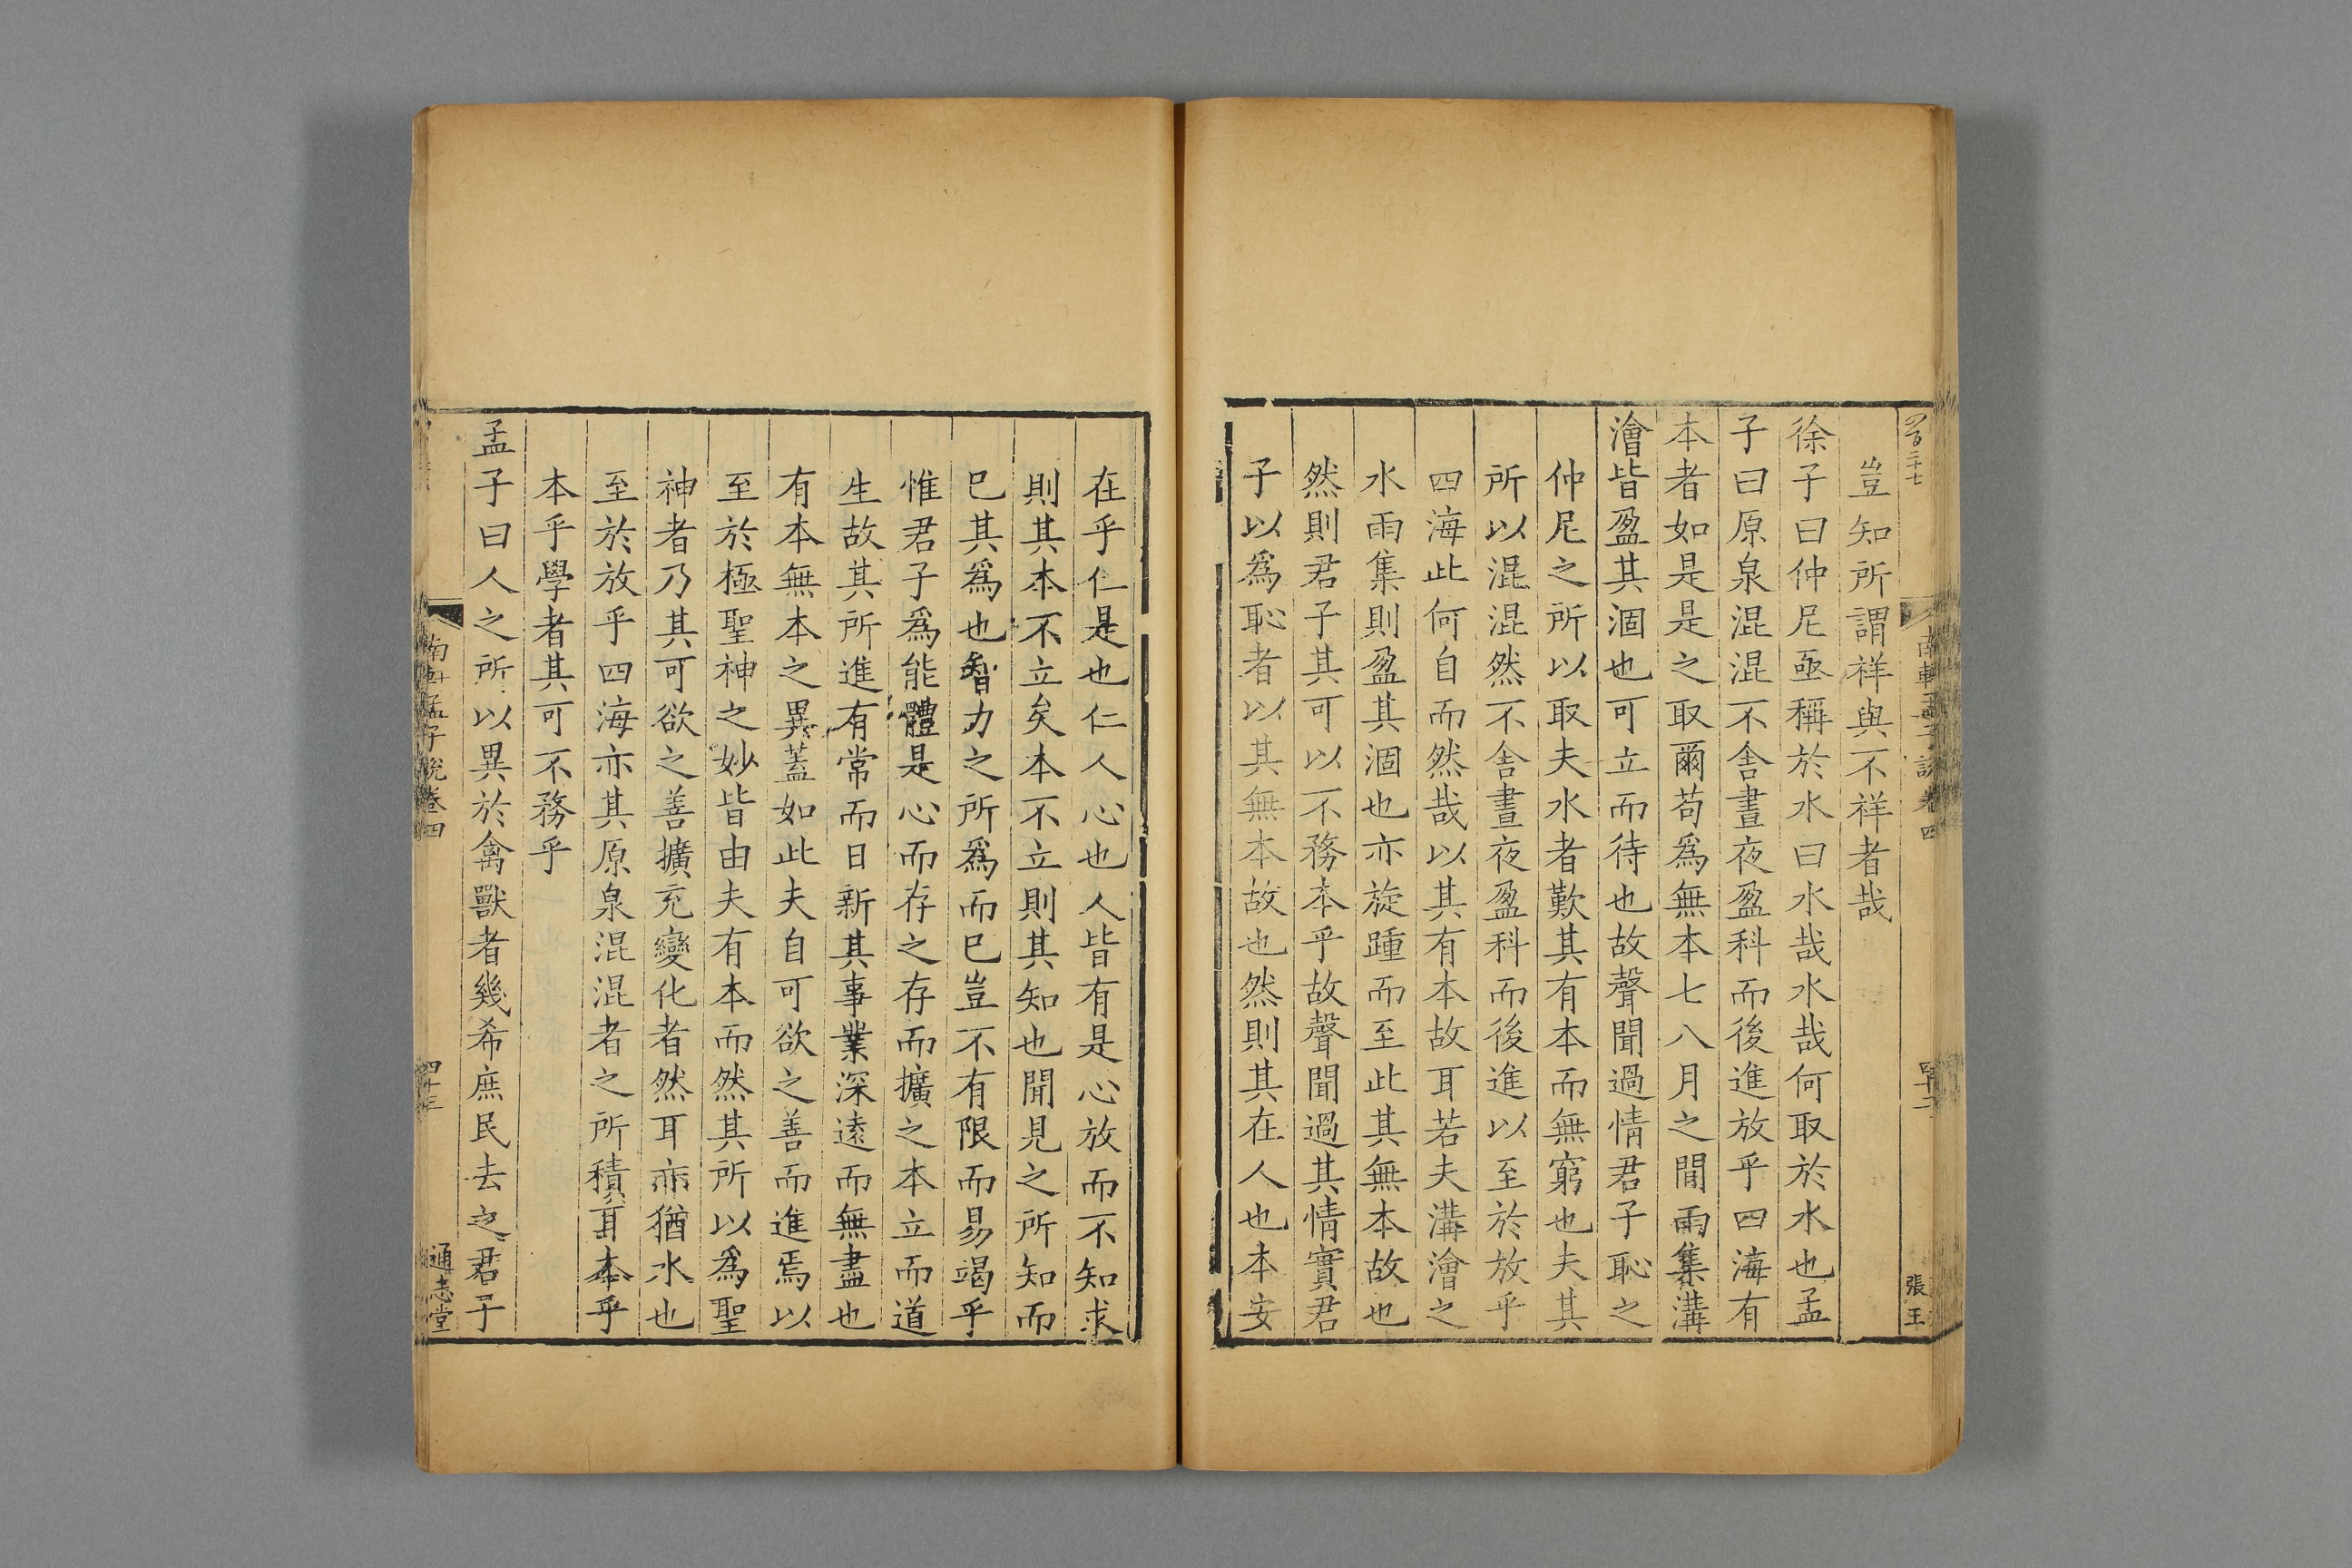 豈知所謂祥與不祥者哉
徐子曰仲尼亟稱於水曰水哉水哉何取於水也孟
子曰原泉混混不舍晝夜盈科而後進放乎四海有
本者如是是之取爾苟爲無本七八月之閒雨集溝
澮皆盈其涸也可立而待也故聲聞過情君子恥之
仲尼之所以取夫水者歎其有本而無窮也夫其
所以混混然不舍晝夜盈科而後進以至於放乎
四海此何自而然哉以其有本故耳若夫溝澮之
水雨集則盈其涸也亦旋踵而至此其無本故也
然則君子其可以不務本乎故聲聞過其情實君
子以爲恥者以其無本故也然則其在人也本安
在乎仁是也仁人心也人皆有是心放而不知求
則其本不立矣本不立則其知也聞見之所知而
已其爲也智力之所爲而已豈不有限而易竭乎
惟君子爲能體是心而存之存而擴之本立而道
生故其所進有常而日新其事業深遠而無盡也
有本無本之異蓋如此夫自可欲之善而進焉以
至於極聖神之妙皆由夫有本而然其所以爲聖
神者乃其可欲之善擴充變化者然耳亦猶水也
至於放乎四海亦其原泉混混者之所積耳本乎
本乎學者其可不務乎
孟子曰人之所以異於禽獸者幾希庶民去之君子
南軒孟子說卷四
四十三
通志堂
南軒孟子說卷四
四十二
張玉